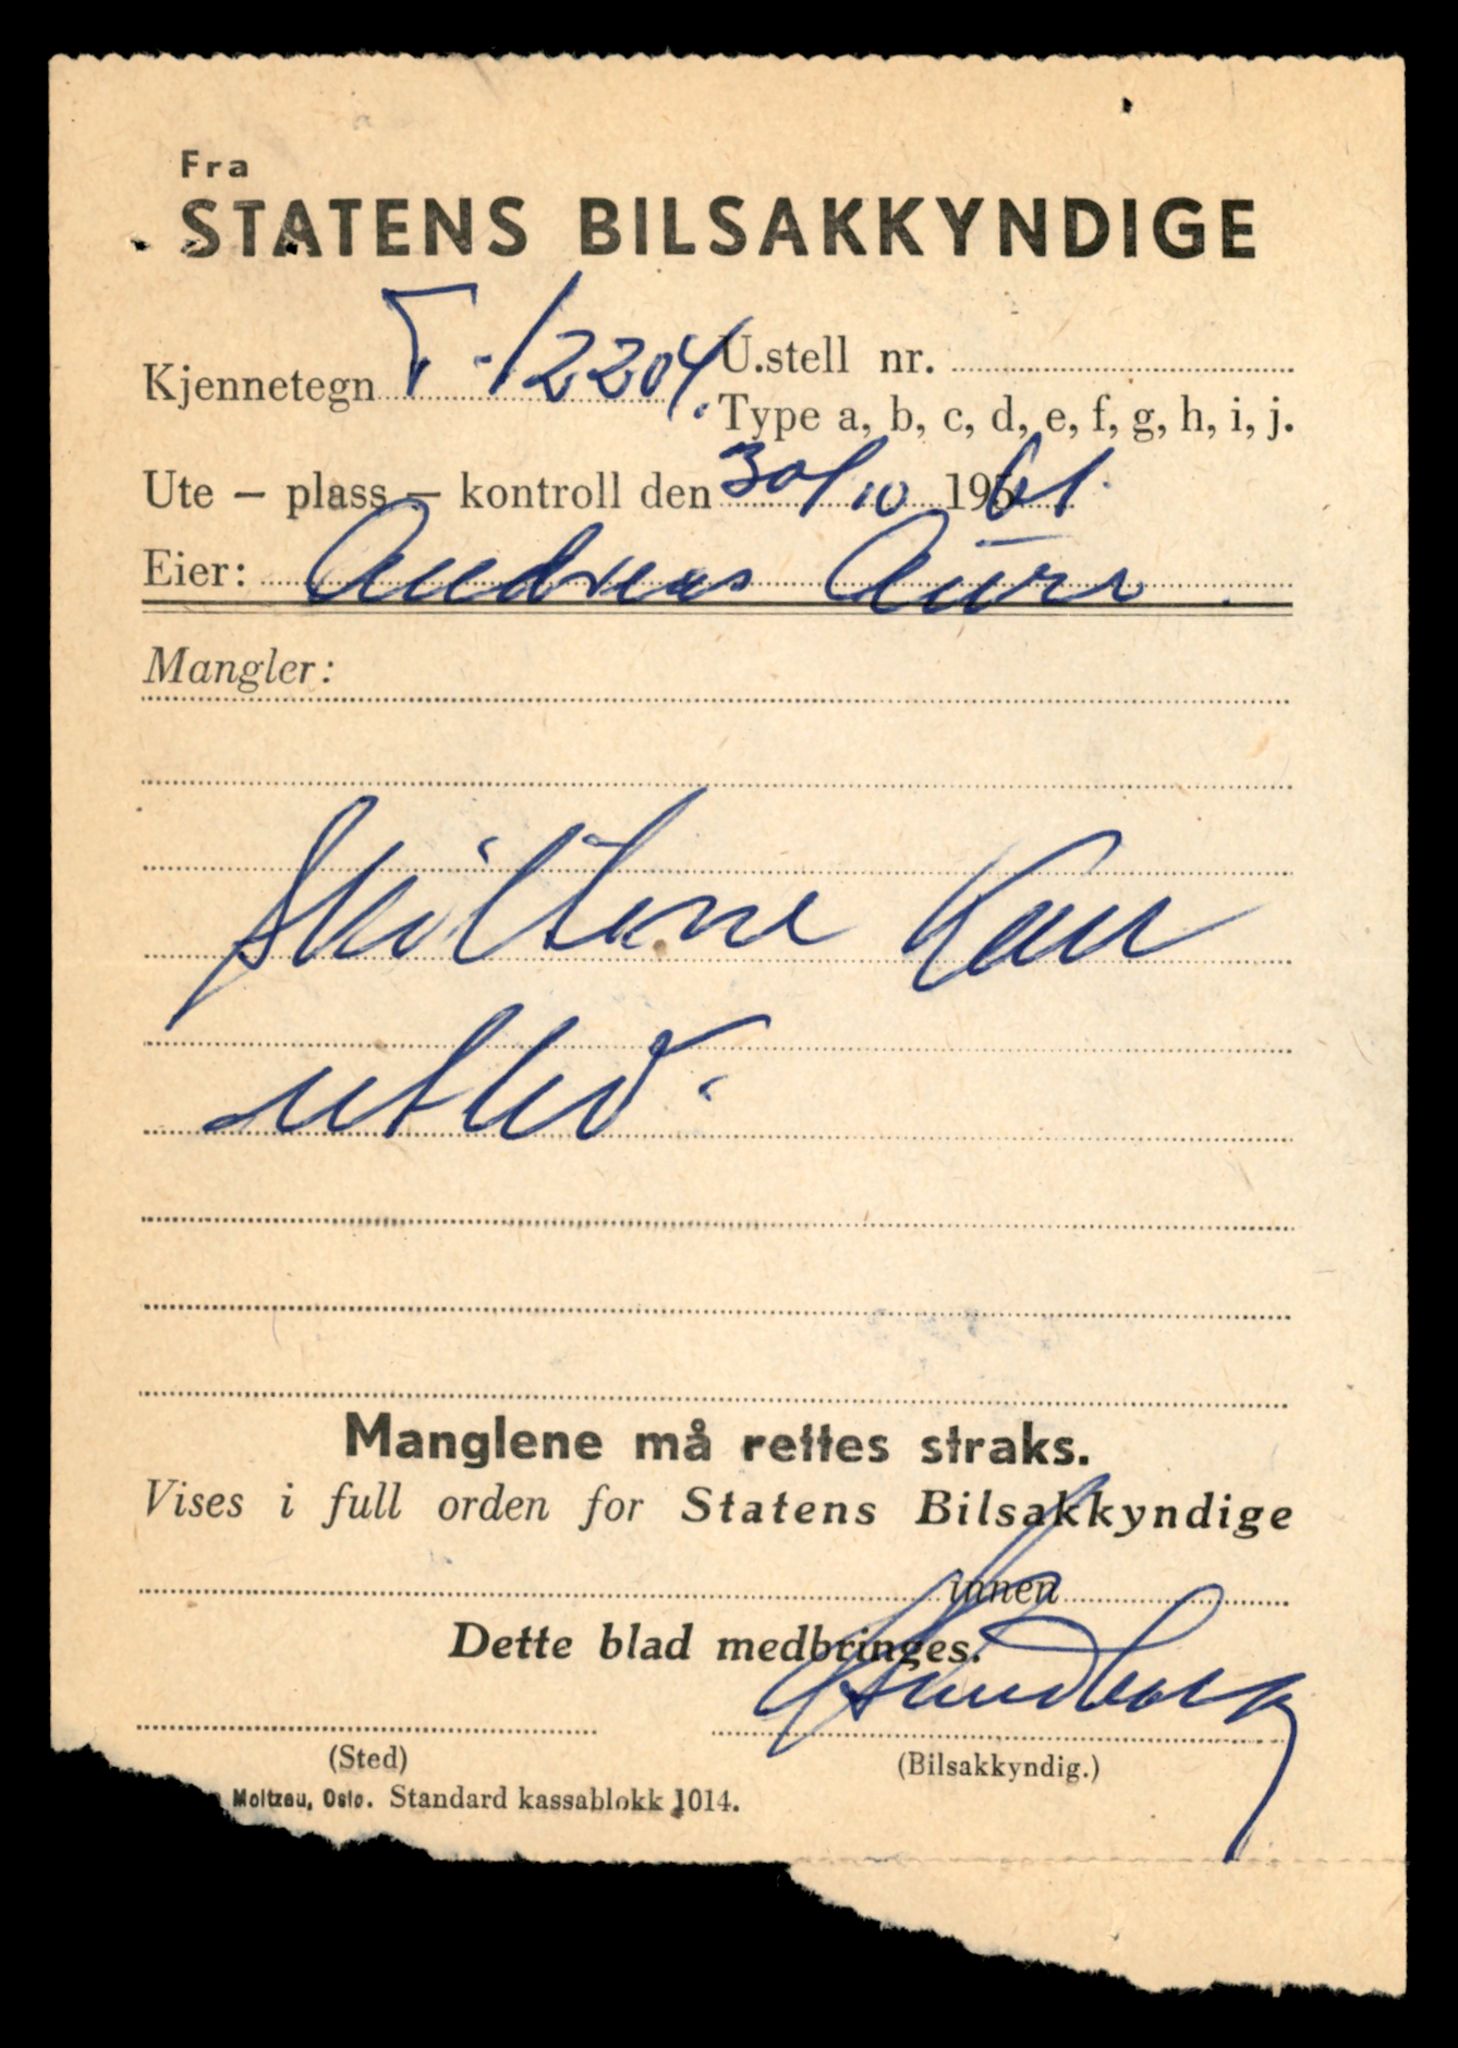 Fra
STATENS BILSAKKYNDIGE
Kjennetegn T-12204. U.stell nr.
Type a, b, c, d, e, f, g, h, i, j.
Ute – plass – kontroll den 30/10 1961.
Eier: Andreas Aure
Mangler:
Skiltene kan
utlev.
Manglene må rettes straks.
Vises i full orden for Statens Bilsakkyndige
innen
Dette blad medbringes.
(Sted) (Bilsakkyndig.)
Moltzau, Oslo. Standard kassablokk 1014.